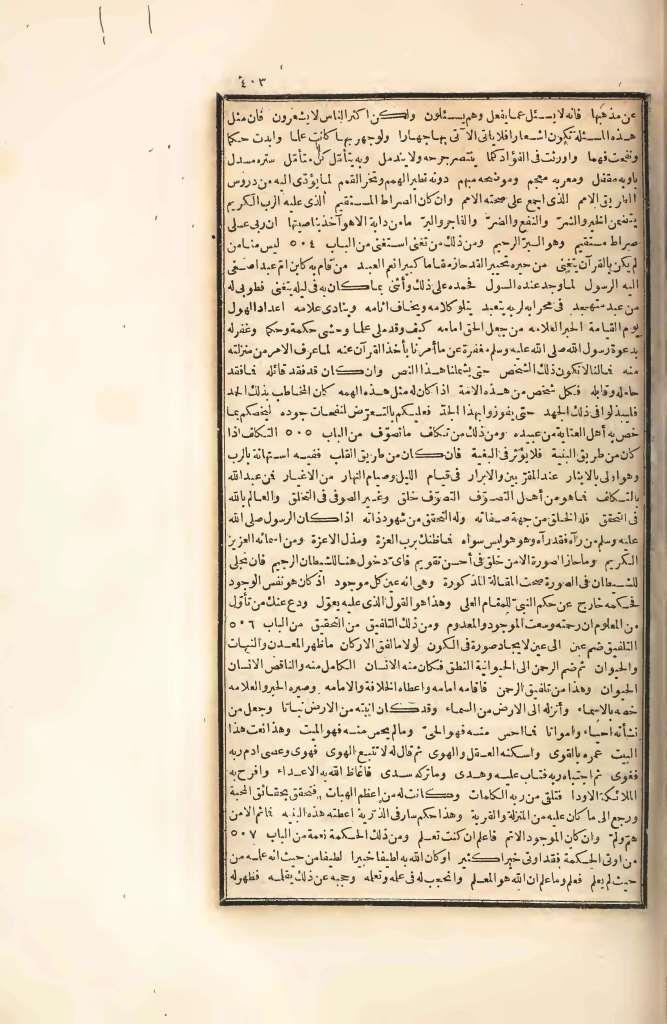 ٤٠٣
عن مذهبها فانه لا يسئل عما يفعل وهم يسئلون ولكن اكثر الناس لا يشعرون فان مثل
هذه المسئلة تكون اشعارا فلا باتى الآتى بها جهارا ولو جهر بها كانت علما وابدت حكما
ونفخت فهما واورثت فى الفؤاد كلما ينتصر جرحه ولا يندمل وبه يتأمل كل متأمل ستره مسدل
وبابه مقفل ومعربه معجم وموضحه مبهم دونه تطير الهمم وتخر القمم لما يؤدى اليه من دروس
الطريق الامم الذى اجمع على صحته الامم وان كان الصراط المستقيم الذى عليه الرب الكريم
يتضمن الخير والشر والنفع والضر والفاجر والبر ما من دابة الا هو آخذ بناصيتها ان ربى على
صراط مستقيم وهو البر الرحيم ومن ذلك من تغنى استغنى من الباب ٥٠٤ ليس منا من
لم يكن بالقرآن يتغنى من حبره تحبير القد حاز مقاما كبيرا نعم العبيد من قام به كابن ام عبد اصغى
اليه الرسول لما وجد عنده السول فحمده على ذلك وأثنى بما كان به فى ليله يتغنى فطوبى له
من عبد متهجد فى محرابه لربه يتعبد يتلو كلامه ويخاف اثامه وينادى علامه اعداد الهول
يوم القيامة الحبر العلامه من جعل الحق امامه كيف وقد ملى علما وحشى حكمة وحكما وغفر له
بدعوة رسول الله صلى الله عليه وسلم مغفرة عن ما أمرنا بأخذ القرآن عنه لما عرف الامر من منزلته
منه فمالنا لا نكون ذلك الشخص حتى يشملنا هذا النص وان كان قد فقد قائله فما فقد
حامله وقابله فكل شخص من هذه الامة اذا كان له مثل هذه الهمه كان المخاطب بذلك الحمد
فليبذلوا فى ذلك الجهد حتى يفوزوا بهذا الجد فعليكم بالتعرض لنفحات جوده ليخصكم بما
خص به أهل العناية من عبيده ومن ذلك من تكلف ما تصوف من الباب ٥٠٥ التكلف اذا
كان من طريق البنية فلا يؤثر فى البغية فان كان من طريق القلب ففيه استهانة بالرب
وهو اولى بالايثار عند المقربين والابرار فى قيام الليل وصيام النهار من الاغيار فمن عبد الله
بالتكلف فما هو من أهل التصوف التصوف خلق وغير الصوفى فى التخلق والعالم بالله
فى التحقق فله الخلق من جهة صفاته وله التحقق من شهود ذاته اذا كان الرسول صلى الله
عليه وسلم من رآه فقد رآه وهو هو ليس سواه فما ظنك برب العزة ومذل الاعزة ومن اسمائه العزيز
الكريم وما حاز الصورة الا من خلق فى أحسن تقويم فاى دخول هنا للشيطان الرجيم فان تجلى
للشيطان فى الصورة صحت المقالة المذكورة وهى انه عن كل موجود اذ كان هو نفس الوجود
فحكمه خارج عن حكم النبى للمقام العلى وهذا هو القول الذى عليه يعول ودع عنك من تأول
من المعلوم ان رحمته وسعت الموجود والمعدوم ومن ذلك التلفيق من التحقيق من الباب ٥٠٦
التلفيق ضم عين الى عين لايجاد صورة فى الكون لولا ما لفق الاركان ما ظهر المعدن والنبات
والحيوان ثم ضم الرحمن الى الحيوانية النطق فكان منه الانسان الكامل منه والناقص الانسان
الحيوان وهذا من تلفيق الرحمن فاقامه امامه واعطاه الخلافة والامامه وصيره الحبر والعلامه
خصه بالاسماء وأنزله الى الارض من السماء وقد كان انبته من الارض نباتا وجعل من
نشأته احياء وامواتا فما احس منه فهو الحى وما لم يحس منه فهو الميت وهذا نعت هذا
البيت عمره بالقوى واسكنه العقل والهوى ثم قال له لا تتبع الهوى فهوى وعصى ادم ربه
فغوى ثم اجتباه ربه فتاب عليه وهدى وما تركه سدى فاغاظ الله به الاعداء وافرح به
الملائكة الاودا فتلقى من ربه الكلمات وكانت له من اعظم الهبات فتحقق بحقائق المحبة
ورجع الى ما كان عليه من المنزلة والقربة وهذا حكم سار فى الذرية اعطته هذه البنيه فما ثم الا من
هم ولم وان كان الموجود الاتم فاعلم ان كنت تعلم ومن ذلك الحكمة نعمة من الباب ٥٠٧
من اوتى الحكمة فقد اوتى خيرا كثير او كان الله به لطيفا خبيرا لطيفا من حيث انه علمه من
حيث لم يعلم فعلم وما علم ان الله هو المعلم وانحجب له فى علمه وتعلمه وحجبه عن ذلك بقلمه فظهر له